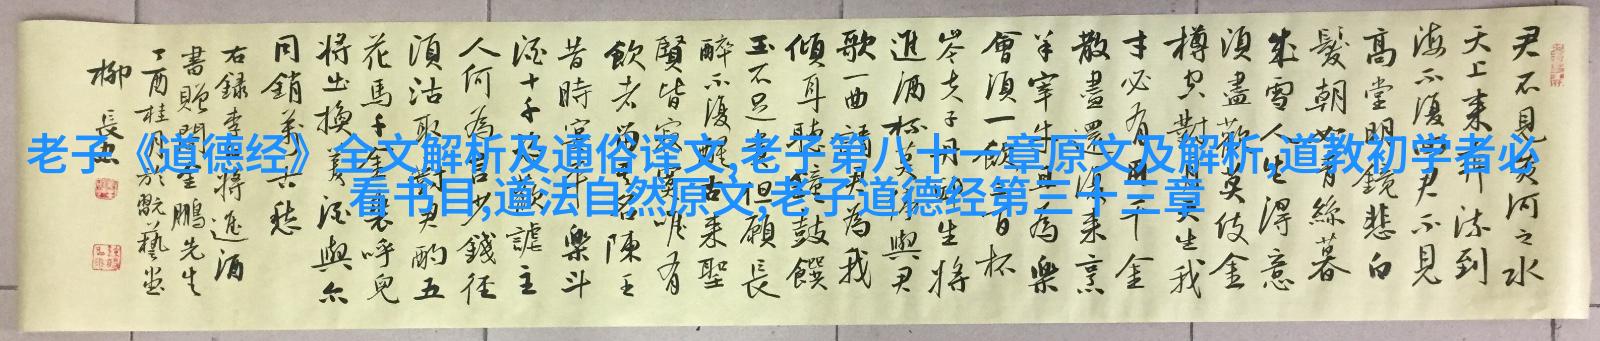 老子《道德经》全文解析及通俗译文,老子第八十一章原文及解析,道教初学者必
看书目,道法自然原文,老子道德经第三十三章
君不見黃河之水
天上來奔流到
海不復回君不見
高堂明鏡悲白
髮朝如青絲暮
成雪人生得意
須盡歡莫使金
樽空對月天生我
才必有用千金
散盡還復來烹
羊宰牛且為樂
會須一飲三百杯
岑夫子丹邱生將
進酒杯莫停與君
歌一曲請君為我
傾耳聽鐘鼓饌
玉不足貴但願長
醉不復醒古來聖
賢皆寂寞唯有
飲者留其名陳王
昔時宴平樂斗
酒十千恣歡謔主
人何為言少錢徑
須沽取對君酌五
花馬千金裘呼兒
將出換美酒與尔
同銷萬古愁
右録李白將進酒
書贈鵬先生
丁酉桂月於翫藝堂
柳長忠